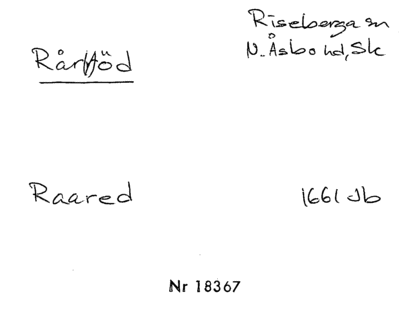 Riseberga sn
N. Åsbo hd, Sk
Raared
1661 Jb
Nr 18367